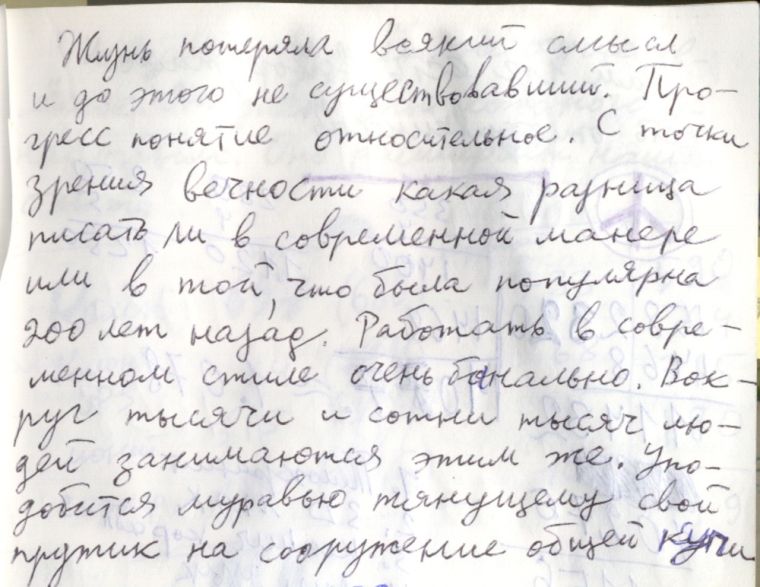 Жизнь потеряла всякий смысл
и до этого не существовавший. Про-
гресс понятие относительное. С точки
зрения вечности какая разница
писать ли в современной манере
или в той, что была популярна
200 лет назад. Работать в совре-
менном стиле очень банально. Вок-
руг тысячи и сотни тысяч лю-
дей занимаются этим же. Упо-
добится муравью тянущему свой
прутик на сооружение общей кучи